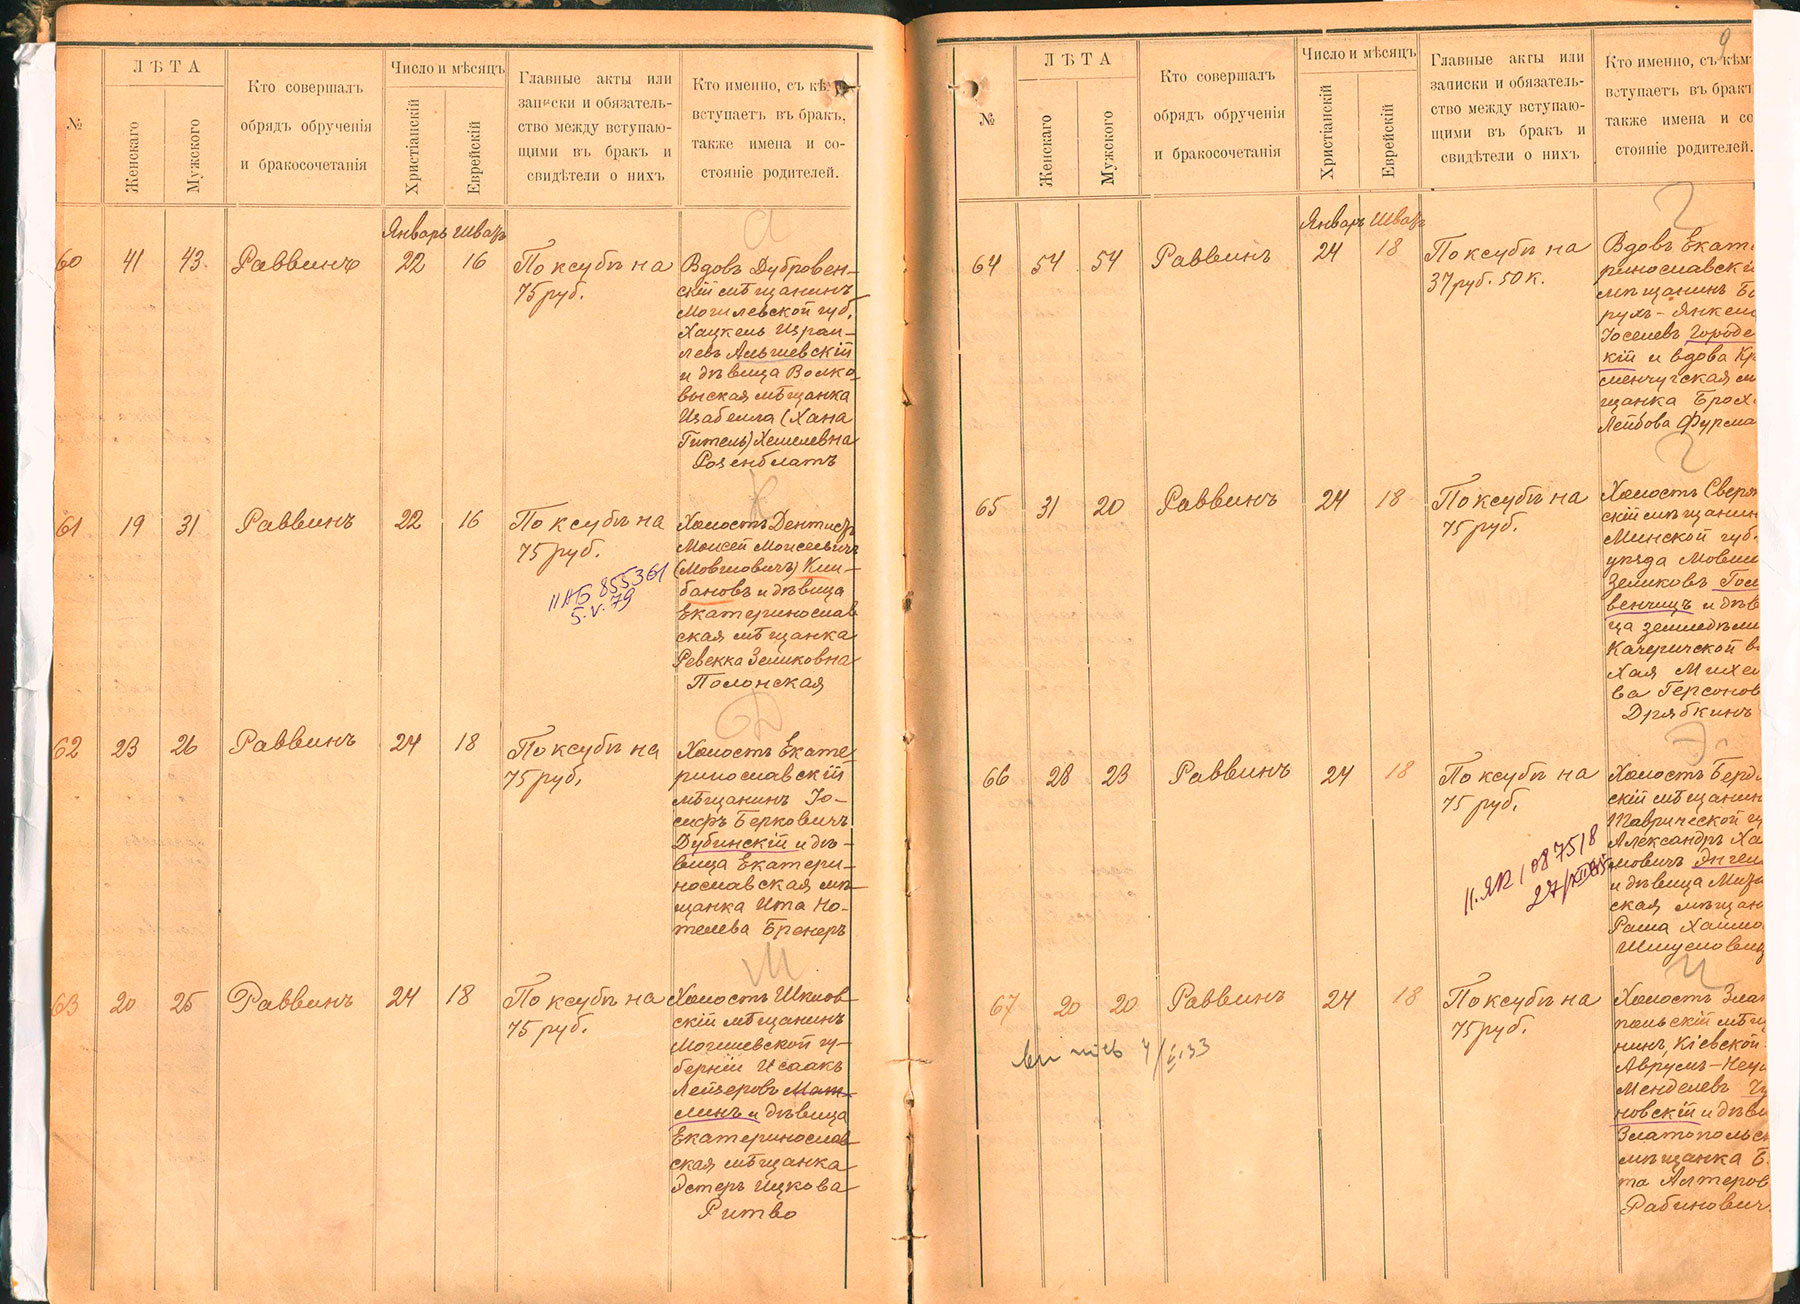 №
ЛѢТА
Женскаго
Мужского
Кто совершалъ
обрядъ обрученія
и бракосочетанія
Число и мѣсяцъ
Христіанскій
Еврейскій
Главные акты или
записки и обязатель-
ство между вступаю-
щими въ бракъ и
свидѣтели о нихъ
Кто именно, съ кѣ
вступаетъ въ бракъ,
также имена и со-
стояніе родителей.
Январь Шватъ
60 41 43 Раввинъ 22 16
По ксубѣ на
75 руб.
а
Вдовъ Дубровен-
скій мѣщанинъ
Могилевской губ.
Хацкель Израи-
левъ Альшевскій
и дѣвица Волко-
выская мѣщанка
Изабелла (Хана
Гитель) Хешелевна
Розенблатъ
61 19 31 Раввинъ 22 16
По ксубѣ на
75 руб.
II АБ 855361
5.V.79
К
Холостъ Дентистъ
Моисей Моисеевичъ
(Мовшовичъ) Кли-
бановъ и дѣвица
Екатеринослав-
ская мѣщанка
Ревекка Зеликовна
Полонская
62 23 26 Раввинъ 24 18
По ксубѣ на
75 руб.
Д
Холостъ Екате-
ринославскій
мѣщанинъ Іо-
сифъ Берковичъ
Дубинскій и дѣ-
вица Екатери-
нославская мѣ-
щанка Ита Но-
телева Бренеръ
63 20 25 Раввинъ 24 18
По ксубѣ на
75 руб.
М
Холостъ Шклов-
скій мѣщанинъ
Могилевской гу-
берніи Исаакъ
Лейзеровъ Мат-
линъ и дѣвица
Екатеринослав-
ская мѣщанка
Эстеръ Ицкова
Ритво
9
№
ЛѢТА
Женскаго
Мужского
Кто совершалъ
обрядъ обрученія
и бракосочетанія
Число и мѣсяцъ
Христіанскій
Еврейскій
Главные акты или
записки и обязатель-
ство между вступаю-
щими въ бракъ и
свидѣтели о нихъ
Кто именно, съ кѣм
вступаетъ въ брак
также имена и со
стояніе родителей.
Январь Шватъ
64 54 54 Раввинъ 24 18
По ксубѣ на
37 руб. 50 к.
Г
Вдовъ Екате
ринославскі
мѣщанинъ Бо
рухъ-Янкель
Іоселевъ Городе
кій и вдова Кр
менчугская м
щанка Брох
Лейбова Фурма
65 31 20 Раввинъ 24 18
По ксубѣ на
75 руб.
Г
Холостъ Сверж
скій мѣщанин
Минской губ.
уѣзда Мовш
Зеликовъ Гос
венчицъ и дѣв
ца земледѣл
Качеричской в
Хая Михе
ва Герсонов
Дрябкинъ
66 28 23 Раввинъ 24 18
По ксубѣ на
75 руб.
II.ЯК 1087518
Э
Холостъ Берд
скій мѣщанин
Таврической г
Александръ Ха
мовичъ Энгел
и дѣвица
ская мѣщан
Раша Хаимо
67 20 20 Раввинъ 24 18
По ксубѣ на
75 руб.
Холостъ Злат
польскій мѣщ
нинъ, Кіевской
Менделевъ
новскій и дѣви
Златопольск
мѣщанка Б
та Алтеров
Рабинович